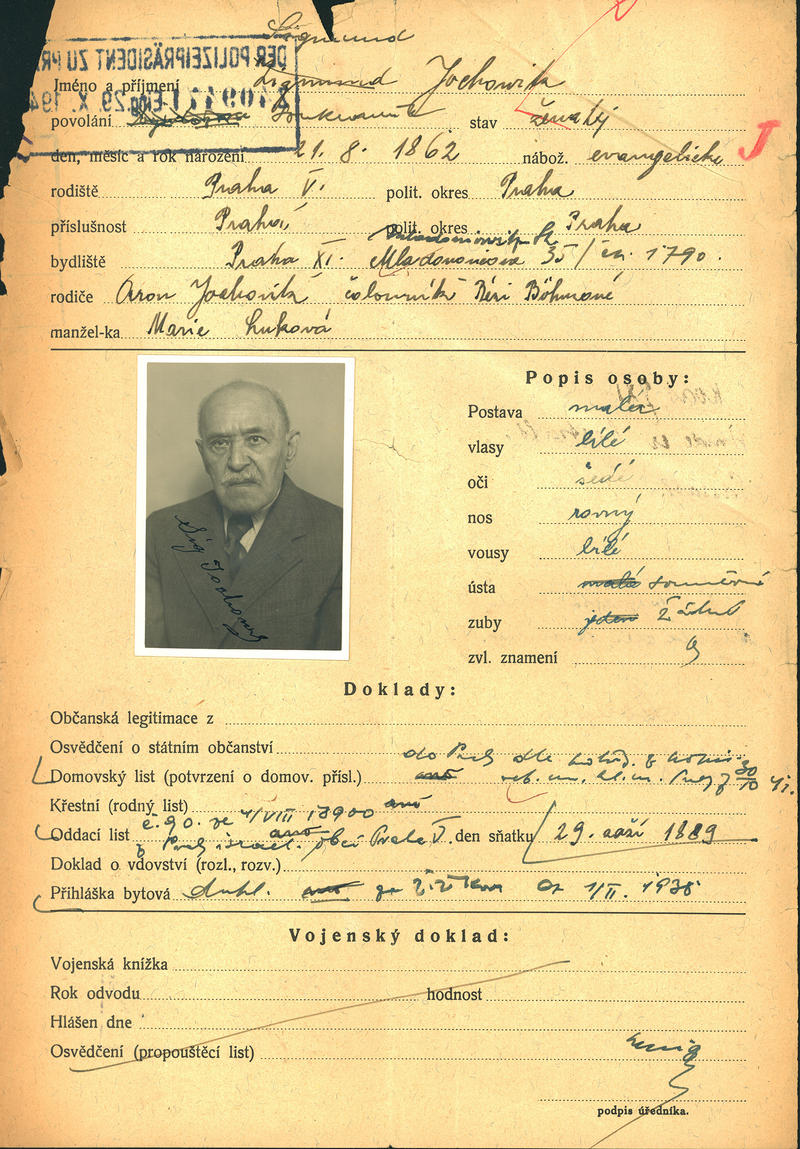 Sigmund
DER POLIZEIPRÄSIDENT ZU PR
Jméno a příjmení Zigmund Jochowitz
povolání soukromník stav ženatý
Eing. 29. X. 194
den, měsíc a rok narození 21. 8. 1862 nábož. evangelické J
rodiště Praha V. polit. okres Praha
příslušnost Praha polit. okres Praha
bydliště Praha XI. Mladoňovicova 35/čp. 1790.
rodiče Aron Jochovitz čalouník Réri Böhmová
manžel-ka Marie Luková
Popis osoby:
Postava malá
vlasy bílé
oči šedé
nos rovný
vousy bílé
ústa malé souměrné
zuby jeden žádné
zvl. znamení
Sig Jochowitz
Doklady:
Občanská legitimace z
Osvědčení o státním občanství
do Prahy dle
Domovský list (potvrzení o domov. přísl.) ano 30/10 41.
Křestní (rodný list) ano
č. 90. ze 4/VIII
Oddací list ano israel. obci Praha V. den sňatku 29. září 1889
Doklad o vdovství (rozl., rozv.)
Přihláška bytová dupl. ano ze Žižkova Od 1/II. 1938
Vojenský doklad:
Vojenská knížka
Rok odvodu hodnost
Hlášen dne
Osvědčení (propouštěcí list)
podpis úředníka.